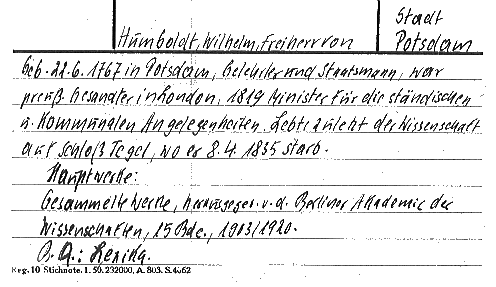 Stadt
Humboldt, Wilhelm, Freiherr von Potsdam
Geb. 22.6.1767 in Potsdam, Gelehrter und Staatsmann, war
preuß. Gesandter in London, 1819 Minister für die ständischen
u. Kommunalen Angelegenheiten. Lebte zuletzt der Wissenschaft
auf Schloß Tegel, wo er 8.4.1835 starb.
Hauptwerke:
Gesammelte Werke, herausgeg. v. d. Berliner Akademie der
Wissenschaften, 15 Bde., 1903/1920.
B.Q.: Lexika.
Reg. 10 Stichnote. 1. 50. 232000, A. 803. S. 4662